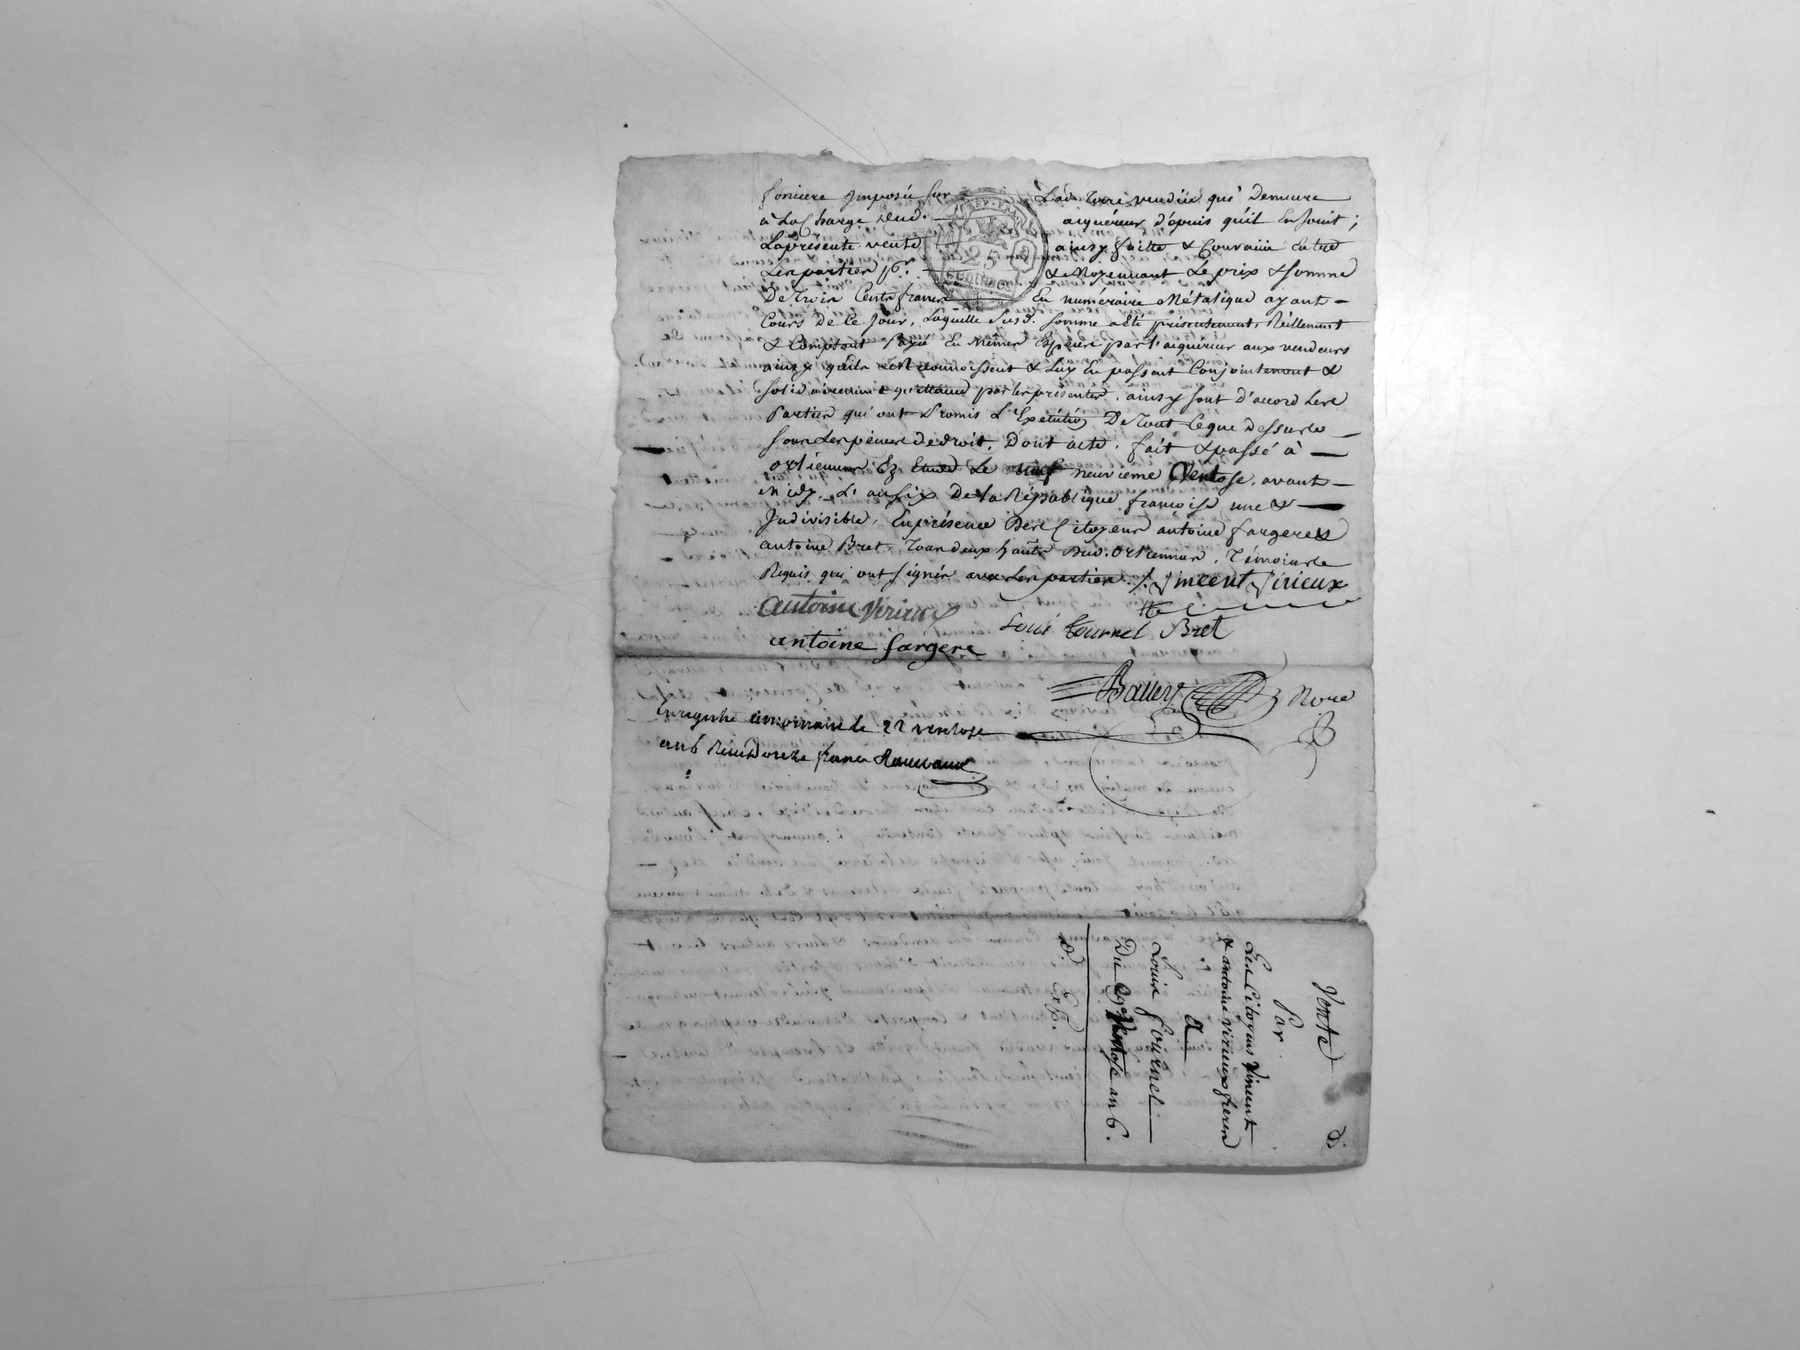 fonciere Imposée sur Lad. terre vendüe qui Demeure
à La Charge dud. aiquéreur, d'epuis qu'il En Jouit;
Laprésente vente ainsy faitte & Convenüe Entre
Les parties pr. & Moyennant Le prix & somme
De trois Cents francs En numéraire Métalique ayant
Cours de Ce Jour, Laquelle susd. somme a été présentement Réellement
& Comptant Payée En Mêmes Espéces par l'aiquéreur aux vendeurs
ainsy qu'ils Le Reconnoissent & Luy En passent Conjointement &
solidairement quittance par les présentes. ainsy sont d'accord Les
Parties qui ont Promis L'Exécution De tout Ceque Dessus
sous Les peines de droit. Dont acte, fait & passé à
Etude Le neuf neuvieme Ventose, avant
midy, L'an six De la République françoise une &
Indivisible, En présence Des Citoyens antoine fargere &
antoine Bret, Témoins
Requis qui ont signés avec Les parties. Vincent Virieux
antoine Virieux
Louis tournel Bret
antoine fargere
Balley Nore
Enregistré le 22 ventose
an 6 Reçu Douze francs
REP. FRA.
25
centimes
Vente
Par
Les Citoyens Vincent
& antoine Virieux freres
a
Louis
Du 9e Ventose an 6.
Exp.